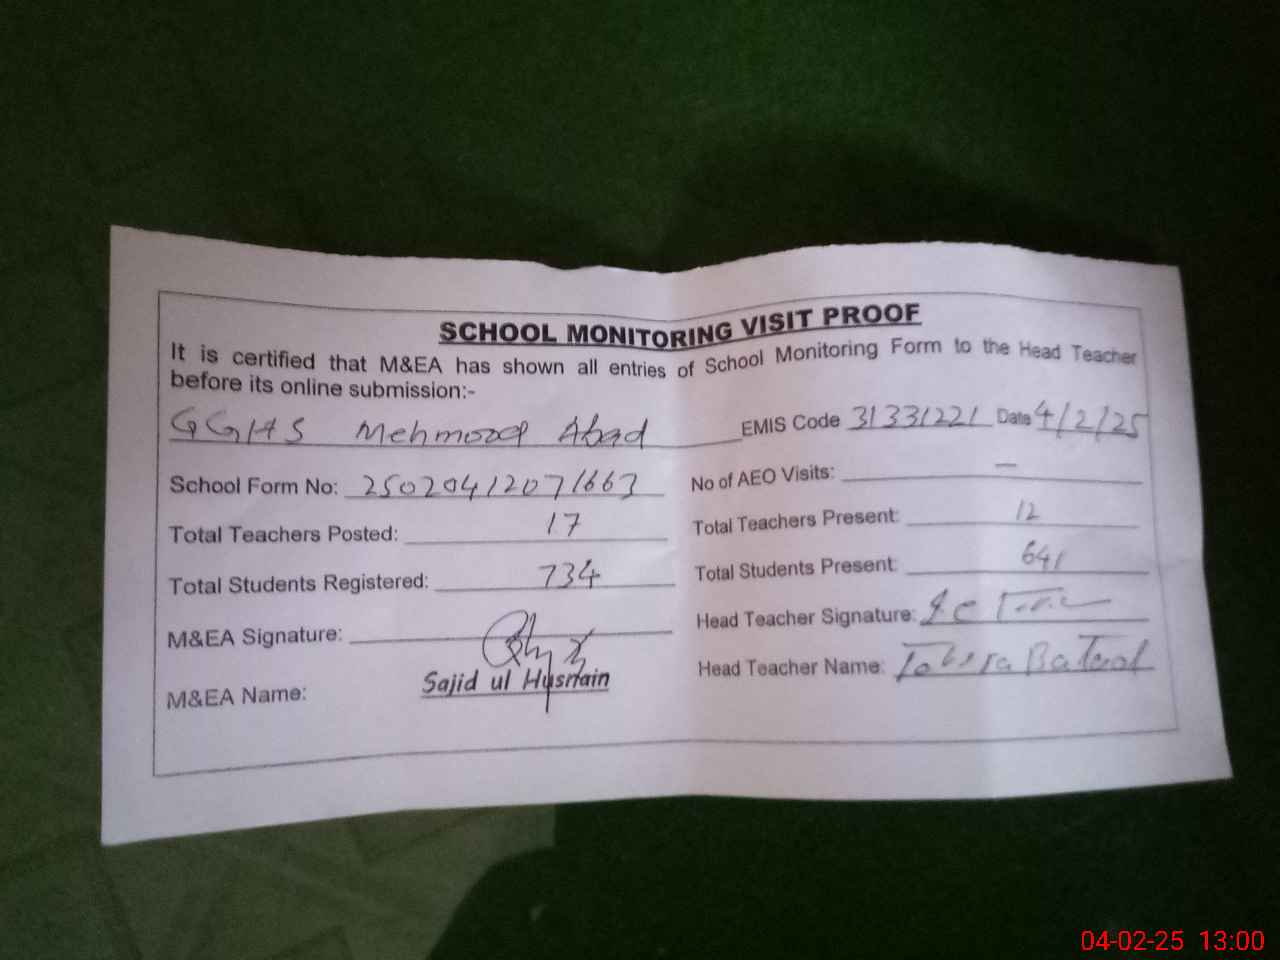 SCHOOL MONITORING VISIT PROOF
It is certified that M&EA has shown all entries of School Monitoring Form to the Head Teacher
before its online submission:-
GGHS Mehmood Abad EMIS Code 31331221 Date 4/2/25
School Form No: 25020412071663 No of AEO Visits: —
Total Teachers Posted: 17 Total Teachers Present: 12
Total Students Registered: 734 Total Students Present: 641
M&EA Signature: Head Teacher Signature:
M&EA Name: Sajid ul Husnain Head Teacher Name: Batool
04-02-25 13:00